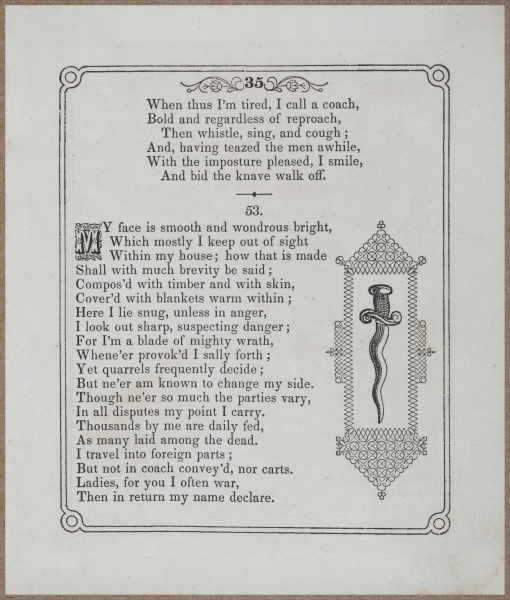 35
When thus I'm tired, I call a coach,
Bold and regardless of reproach,
Then whistle, sing, and cough;
And, having teazed the men awhile,
With the imposture pleased, I smile,
And bid the knave walk off.
53.
MY face is smooth and wondrous bright,
Which mostly I keep out of sight
Within my house; how that is made
Shall with much brevity be said;
Compos'd with timber and with skin,
Cover'd with blankets warm within;
Here I lie snug, unless in anger,
I look out sharp, suspecting danger;
For I'm a blade of mighty wrath,
Whene'er provok'd I sally forth;
Yet quarrels frequently decide;
But ne'er am known to change my side.
Though ne'er so much the parties vary,
In all disputes my point I carry.
Thousands by me are daily fed,
As many laid among the dead.
I travel into foreign parts;
But not in coach convey'd, nor carts.
Ladies, for you I often war,
Then in return my name declare.